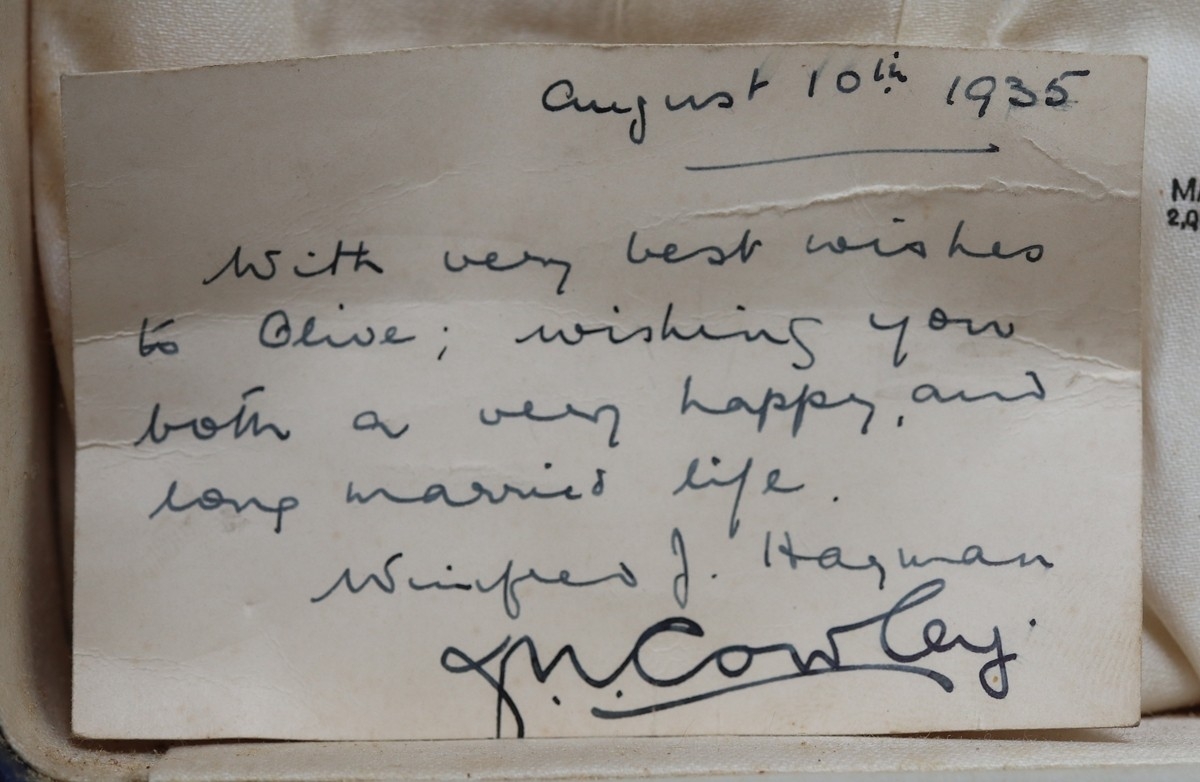 August 10th 1935
With very best wishes
to Olive; wishing you
both a very happy, and
long married life.
Winifred J. Hayman
J.N. Cowley.